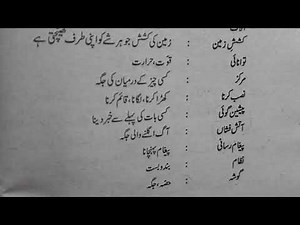 کشش زمین : زمین کی کشش جو ہر شے کو اپنی طرف کھینچتی ہے
توانائی : قوت، حرارت
مرکز : کسی چیز کے درمیان کی جگہ
نصب کرنا : کھڑا کرنا، لگانا، قائم کرنا
پیشین گوئی : کسی بات کی پہلے سے خبر دینا
آتش فشاں : آگ اگلنے والی جگہ
پیغام رسانی : پیغام پہنچانا
نظام : بندوبست
گوشہ : حصہ، جگہ